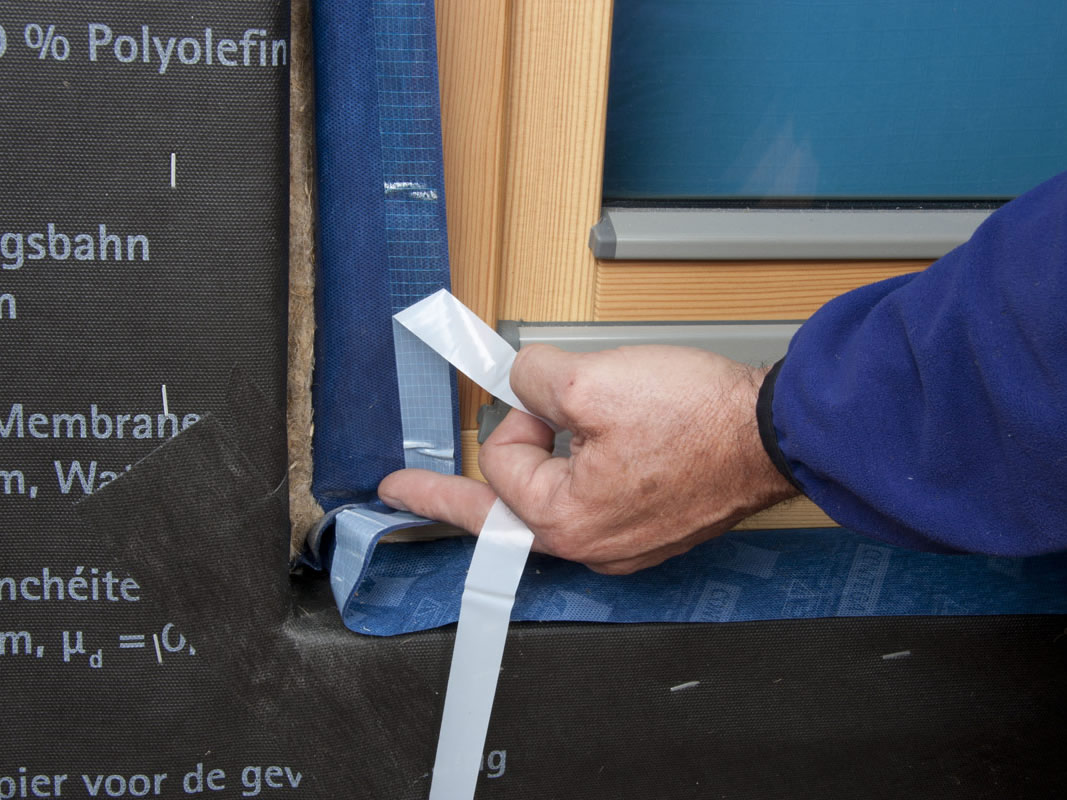 % Polyolefin
gsbahn
Membrane
m, Wa
nchéite
m, μd = 0,
pier voor de gev
ng